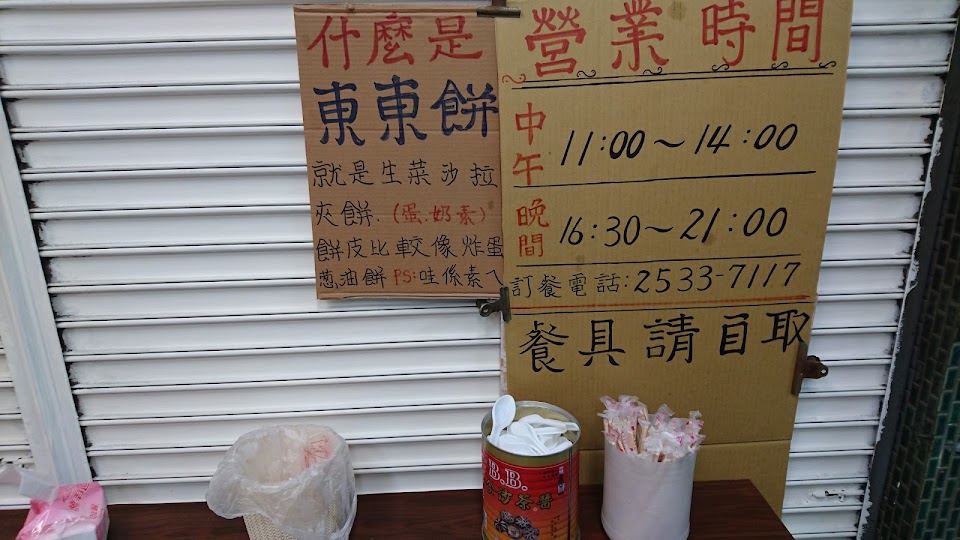 什麼是
東東餅
就是生菜沙拉
夾餅.(蛋.奶素)
餅皮比較像炸蛋
蔥油餅 PS:哇係素ㄟ
營業時間
中午 11:00～14:00
晚間 16:30～21:00
訂餐電話:2533-7117
餐具請自取
B.B.
沙茶醬